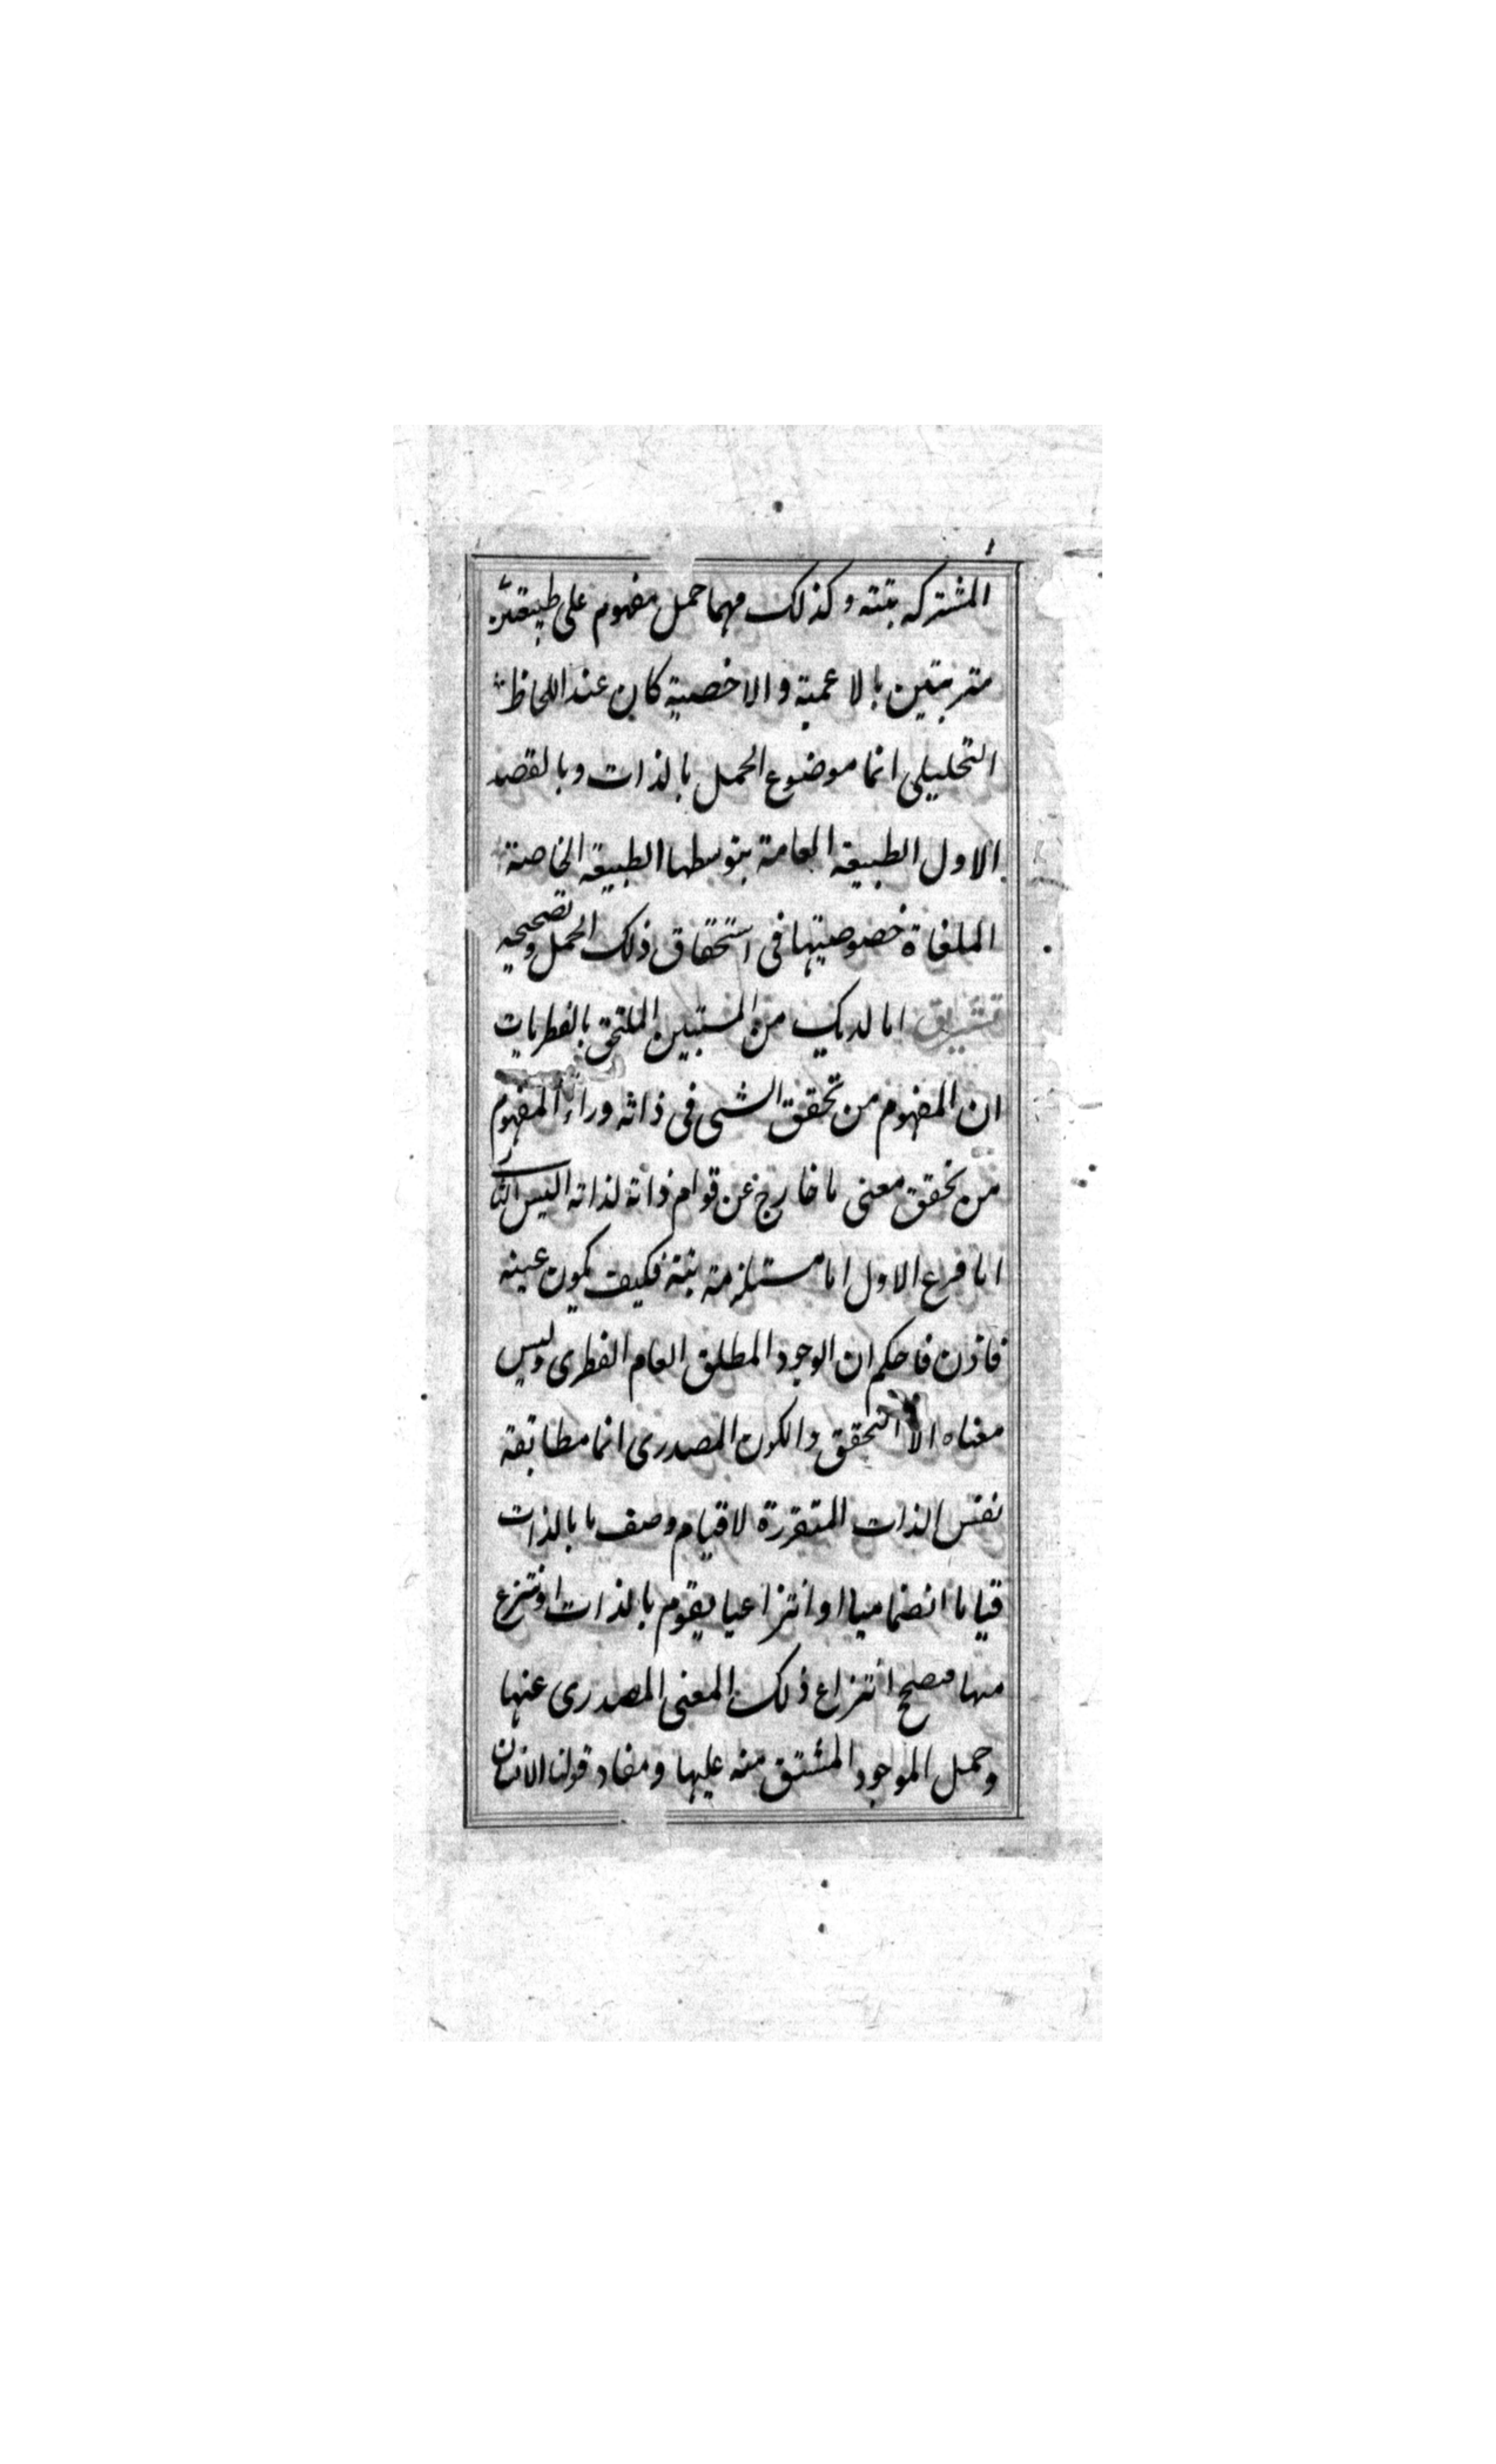 المشتركه بتته وكذلك مهما حمل مفهوم على طبيعتين
مترتبتين بالاعمية والاخصية كان عند اللحاظ
التحليلى انما موضوع الحمل بالذات وبالقصد
الاول الطبيعه العامة بتوسطها الطبيعة الخاصة
الملغاة خصوصيتها فى استحقاق ذلك الحمل وتصحيحه
تشريق اما لديك من المستبين الملتحق بالفطريات
ان المفهوم من تحقق الشى فى ذاته وراء المفهوم
من تحقق معنى ما خارج عن قوام ذاته لذاته اليس
اما فرع الاول اما مستلزمه بتة فكيف يكون عينه
فاذن فاحكم ان الوجود المطلق العام الفطرى وليس
معناه الا التحقق والكون المصدرى انما مطابقة
نفس الذات المتقررة لا قيام وصف ما بالذات
قياما انضماميا او انتزاعيا يقوم بالذات او ينتزع
منها فيصح انتزاع ذلك المعنى المصدرى عنها
وحمل الموجود المشتق منه عليها ومفاد قولنا الانسان